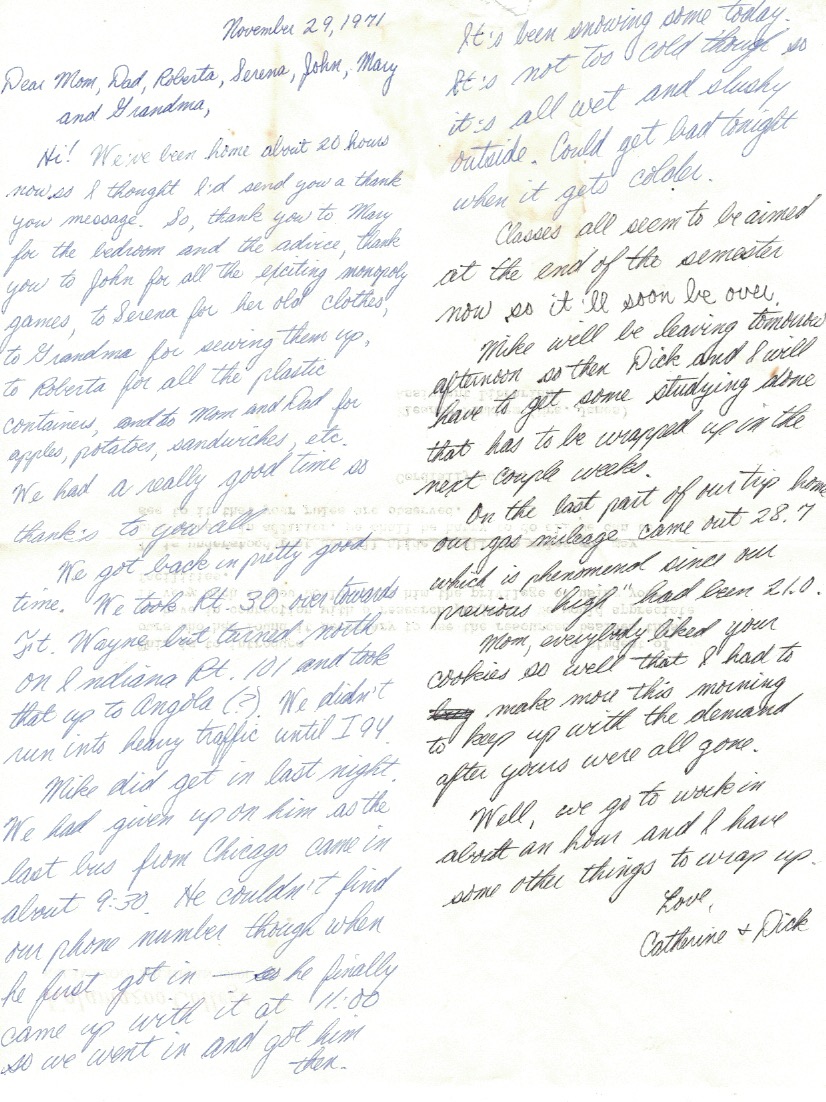 November 29, 1971
Dear Mom, Dad, Roberta, Serena, John, Mary
and Grandma,
Hi! We've been home about 20 hours
now so I thought I'd send you a thank
you message. So, thank you to Mary
for the bedroom and the advice, thank
you to John for all the exciting monopoly
games, to Serena for her old clothes,
to Grandma for sewing them up,
to Roberta for all the plastic
containers, and to Mom and Dad for
apples, potatoes, sandwiches, etc.
We had a really good time so
thank's to you all.
We got back in pretty good
time. We took Rt. 30 over towards
Ft. Wayne but turned north
on Indiana Rt. 101 and took
that up to Angola (?). We didn't
run into heavy traffic until I 94.
Mike did get in last night.
We had given up on him as the
last bus from Chicago came in
about 9:30. He couldn't find
our phone number though when
he first got in — so he finally
came up with it at 11:00
so we went in and got him
then.
It's been snowing some today.
It's not too cold though so
it's all wet and slushy
outside. Could get bad tonight
when it gets colder.
Classes all seem to be aimed
at the end of the semester
now so it'll soon be over.
Mike will be leaving tomorrow
afternoon so then Dick and I will
have to get some studying done
that has to be wrapped up in the
next couple weeks.
On the last part of our trip home
our gas mileage came out 28.7
which is phenomend since our
previous "high" had been 21.0.
Mom, everybody liked your
cookies so well that I had to
make more this morning
to keep up with the demand
after yours were all gone.
Well, we go to work in
about an hour and I have
some other things to wrap up.
Love,
Catherine + Dick